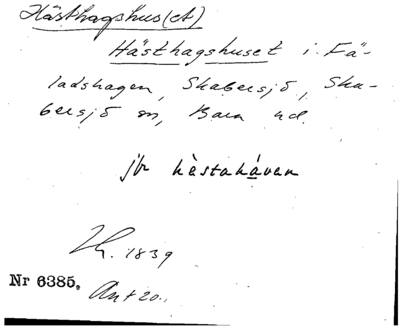 Hästhagshus(et)
Hästhagshuset i Fä-
ladshagen, Skabersjö, Ska-
bersjö sn, Bara hd.
jfr hèstahávan
1839
Nr 6385.
Ant 20.